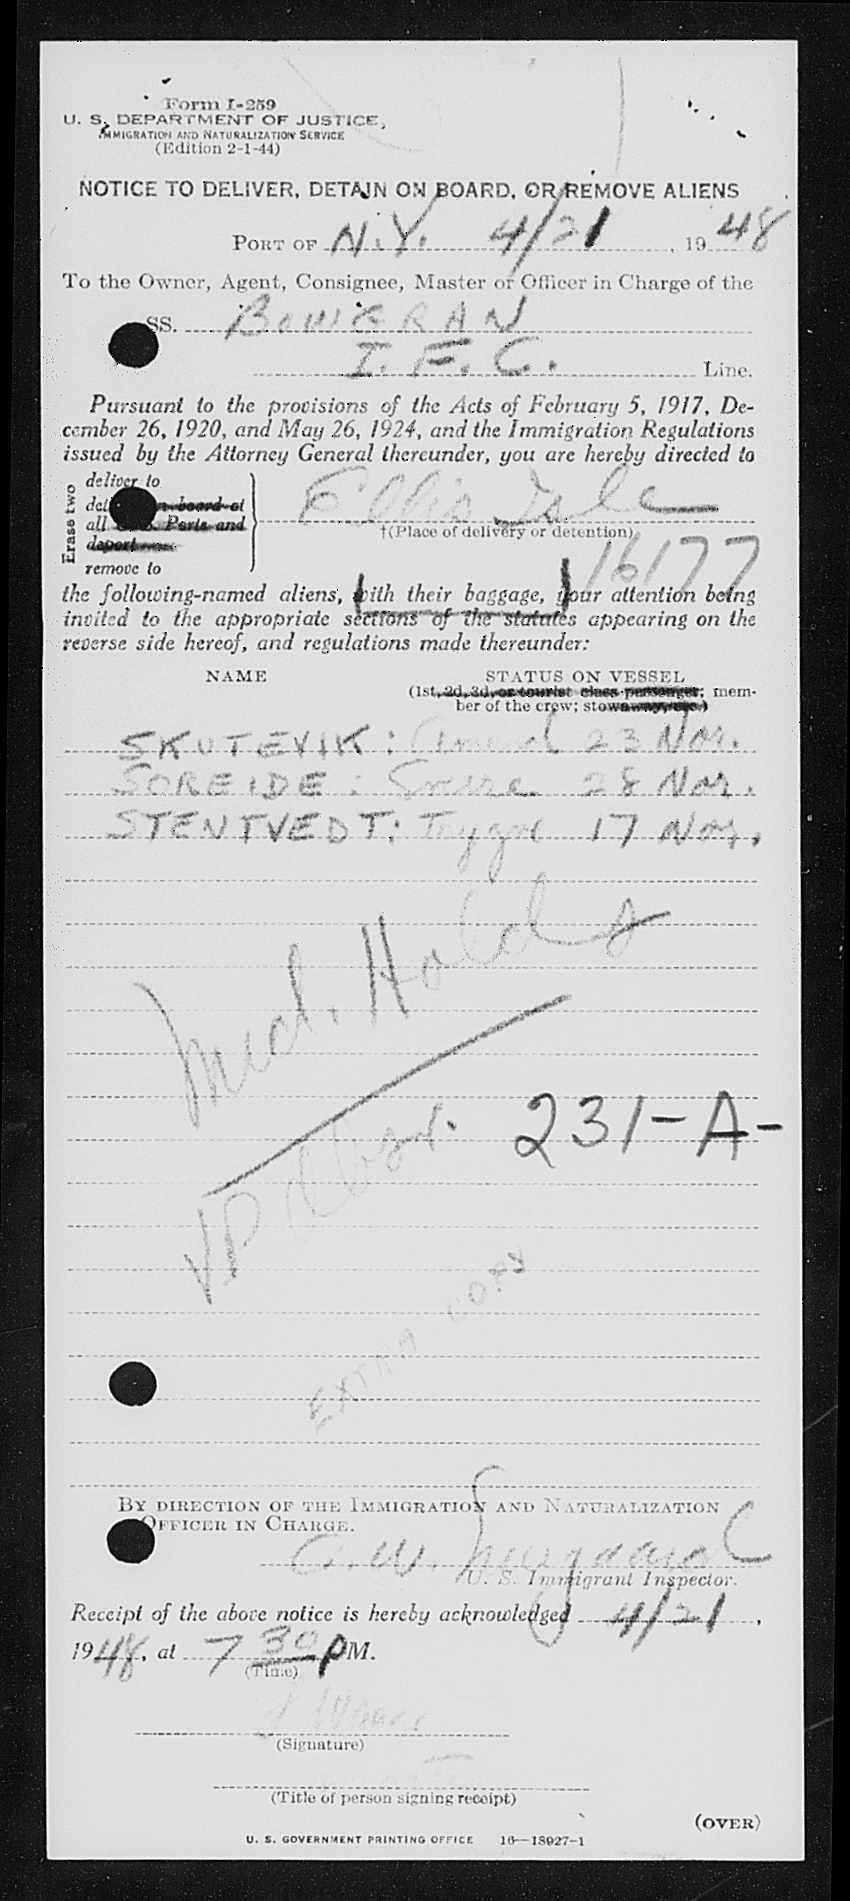 Form I-259
U. S. DEPARTMENT OF JUSTICE,
IMMIGRATION AND NATURALIZATION SERVICE
(Edition 2-1-44)
NOTICE TO DELIVER, DETAIN ON BOARD, OR REMOVE ALIENS
PORT OF N.Y. 4/21, 1948
To the Owner, Agent, Consignee, Master or Officer in Charge of the
SS. BOWGRAN
I. F. C. Line.
Pursuant to the provisions of the Acts of February 5, 1917, De-
cember 26, 1920, and May 26, 1924, and the Immigration Regulations
issued by the Attorney General thereunder, you are hereby directed to
Erase two
deliver to
det n board at
all Ports and
deport
remove to
Ellis Isle
†(Place of delivery or detention)
16177
the following-named aliens, with their baggage, your attention being
invited to the appropriate sections of the statutes appearing on the
reverse side hereof, and regulations made thereunder:
NAME STATUS ON VESSEL
(1st, 2d, 3d, or tourist class passenger; mem-
ber of the crew; stowaway, etc.)
SKUTEVIK: 23 Nor.
SOREIDE: 28 Nor.
STENTVEDT: Trygve 17 Nor.
Med. Holds
231-A-
EXTRA COPY
BY DIRECTION OF THE IMMIGRATION AND NATURALIZATION
OFFICER IN CHARGE.
U. S. Immigrant Inspector.
Receipt of the above notice is hereby acknowledged 4/21,
1948, at 7 30 PM.
(Time)
(Signature)
(Title of person signing receipt)
(OVER)
U. S. GOVERNMENT PRINTING OFFICE 16—18927-1